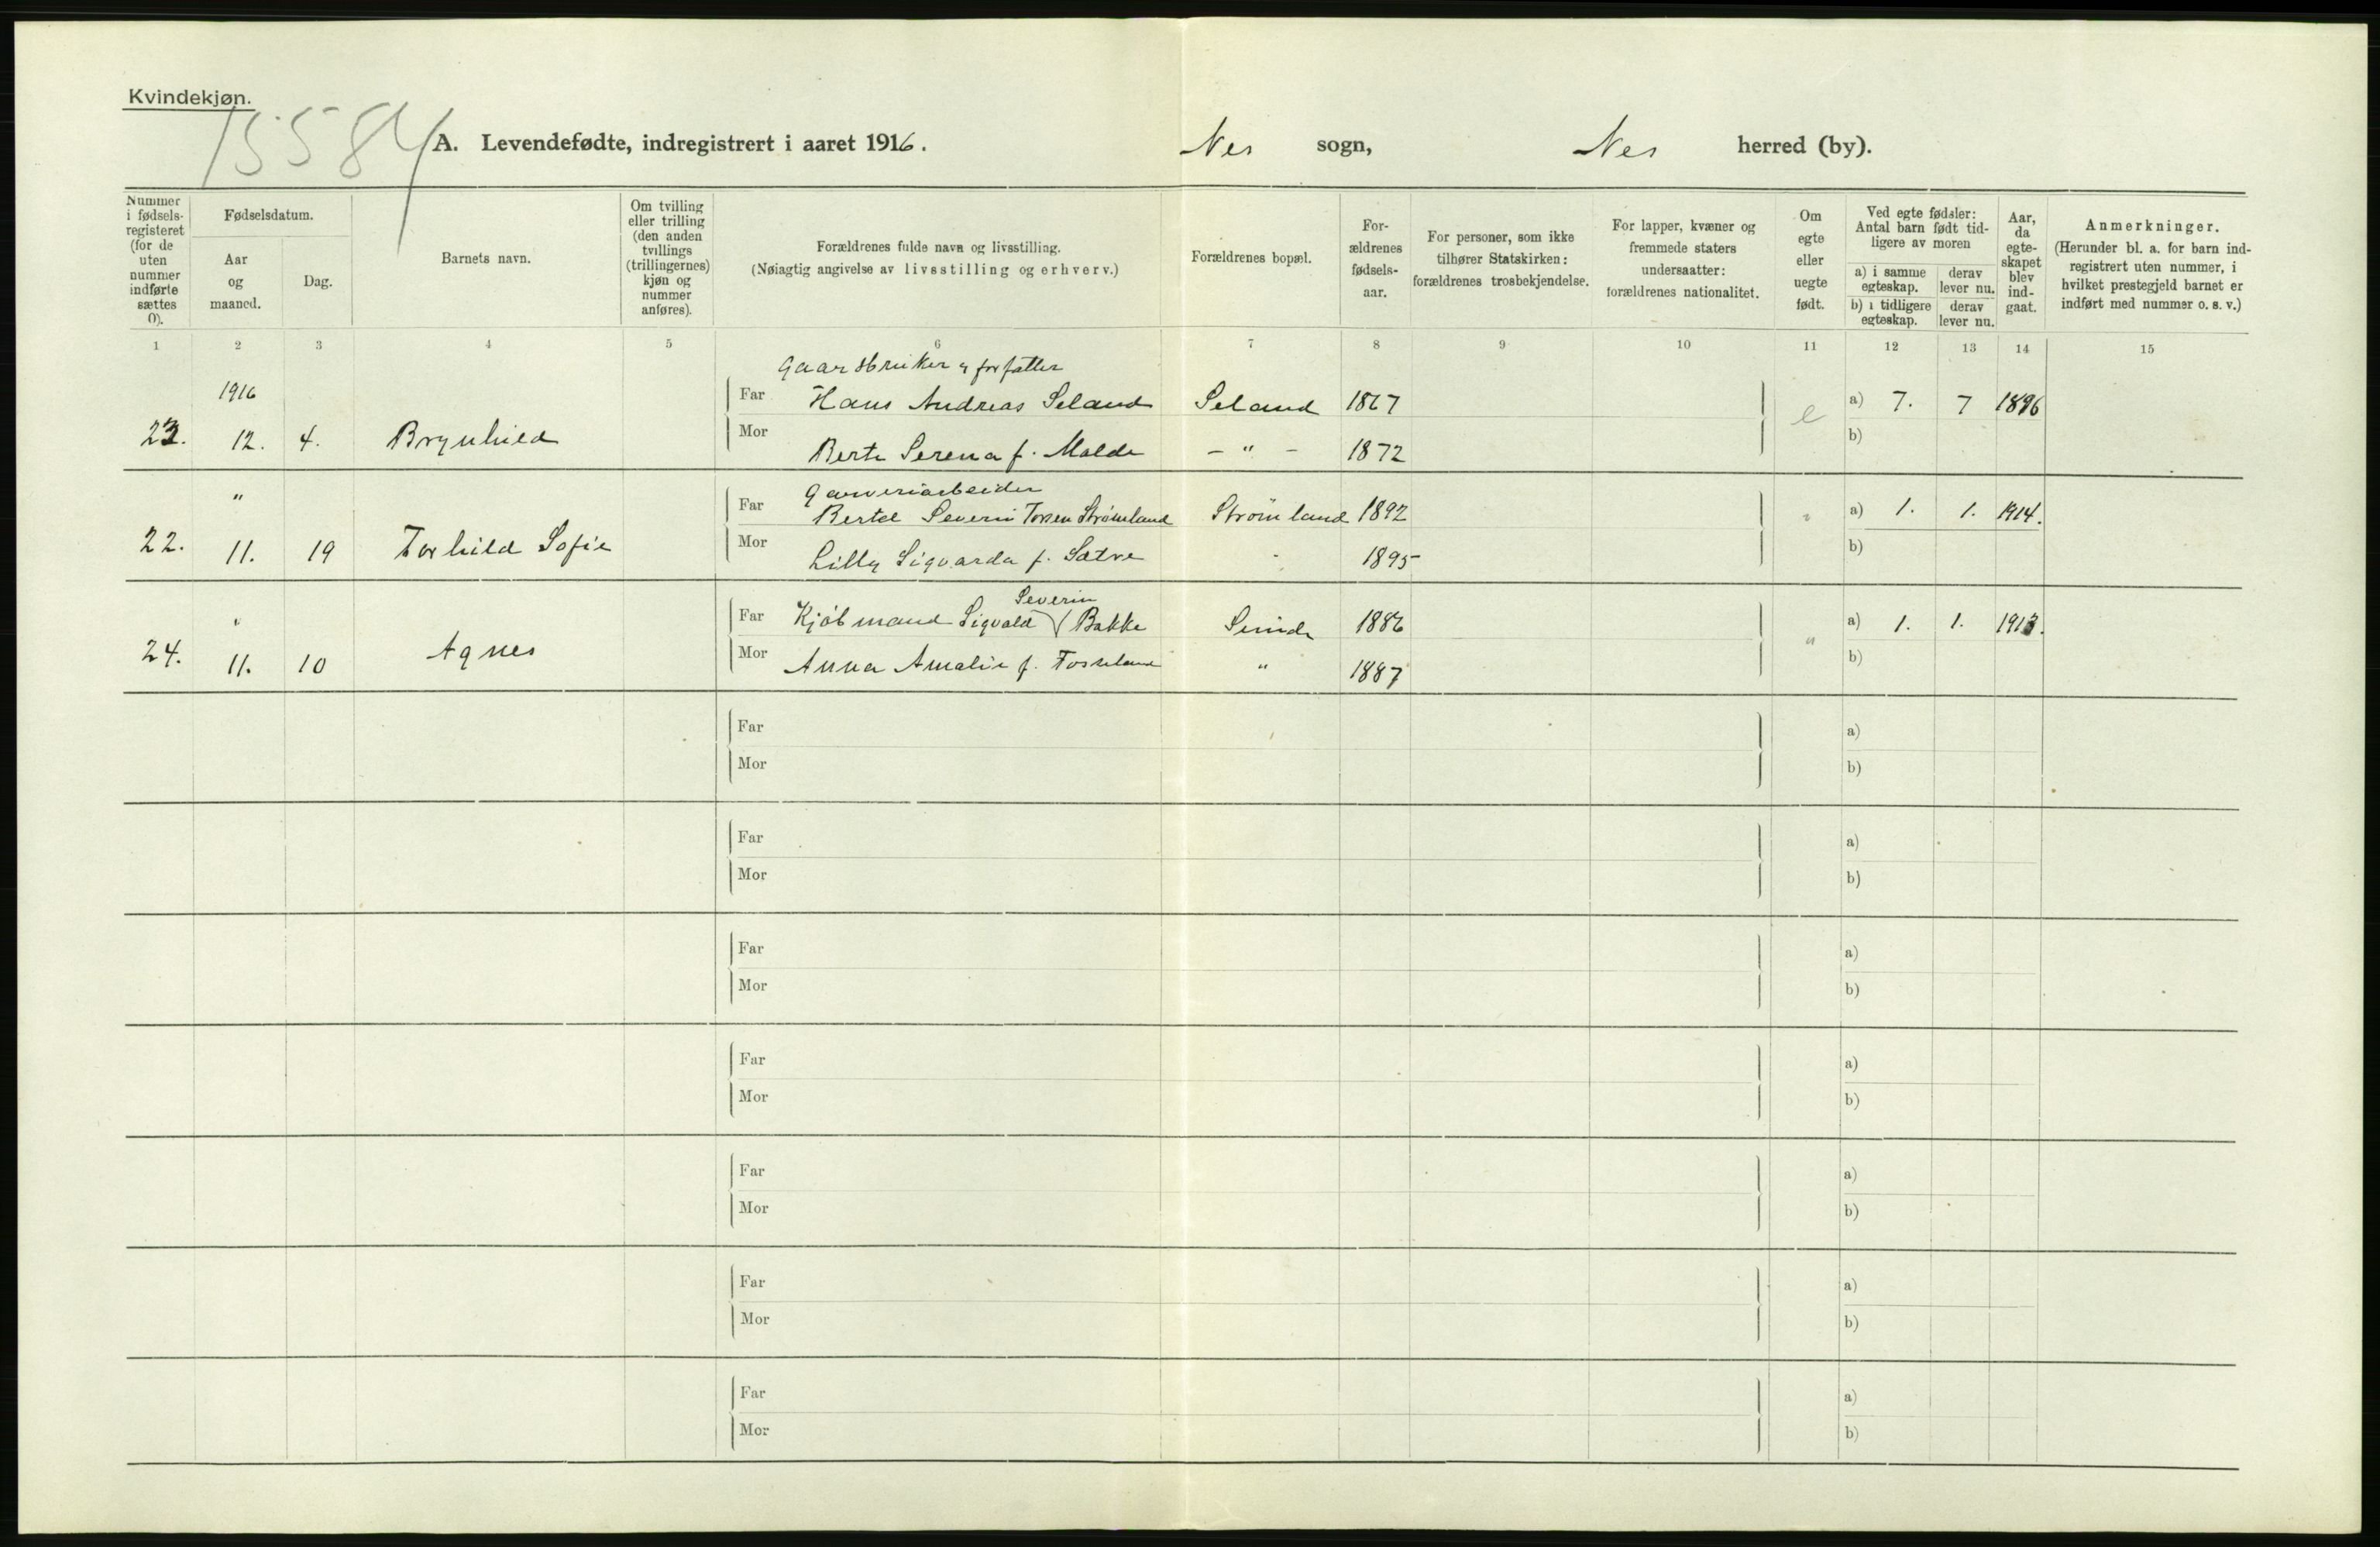 Kvindekjøn.
15584
A. Levendefødte, indregistrert i aaret 1916. Nes sogn, Nes herred (by).
Nummer i fødsels-registeret (for de uten nummer indførte sættes 0).
Fødselsdatum.
Aar og maaned.
Dag.
Barnets navn.
Om tvilling eller trilling (den anden tvillings (trillingernes) kjøn og nummer anføres).
Forældrenes fulde navn og livsstilling.
(Nøiagtig angivelse av livsstilling og erhverv.)
Forældrenes bopæl.
For-ældrenes fødsels-aar.
For personer, som ikke tilhører Statskirken: forældrenes trosbekjendelse.
For lapper, kvæner og fremmede staters undersaatter: forældrenes nationalitet.
Om egte eller uegte født.
Ved egte fødsler: Antal barn født tid-ligere av moren
a) i samme egteskap.
derav lever nu.
b) i tidligere egteskap.
derav lever nu.
Aar, da egte-skapet blev ind-gaat.
Anmerkninger.
(Herunder bl. a. for barn ind-registrert uten nummer, i hvilket prestegjeld barnet er indført med nummer o. s. v.)
1 2 3 4 5 6 7 8 9 10 11 12 13 14 15
Gaardbruker & forfatter
1916 Far Hans Andreas Seland Seland 1867 e a) 7. 7 1896
23. 12. 4. Brynhild Mor Berte Serena f. Molde - " - 1872 b)
Garveriarbeider
" Far Bertel Severin Torsen Strømland Strömland 1892 " a) 1. 1. 1914.
22. 11. 19 Torhild Sofie Mor Lilly Sigvarda f. Sætre " 1895 b)
Severin
" Far Kjöbmand Sigvald Bakke 1886 " a) 1. 1. 1913.
24. 11. 10 Agnes Mor Anna Amalie f. " 1887 b)
Far a)
Mor b)
Far a)
Mor b)
Far a)
Mor b)
Far a)
Mor b)
Far a)
Mor b)
Far a)
Mor b)
Far a)
Mor b)